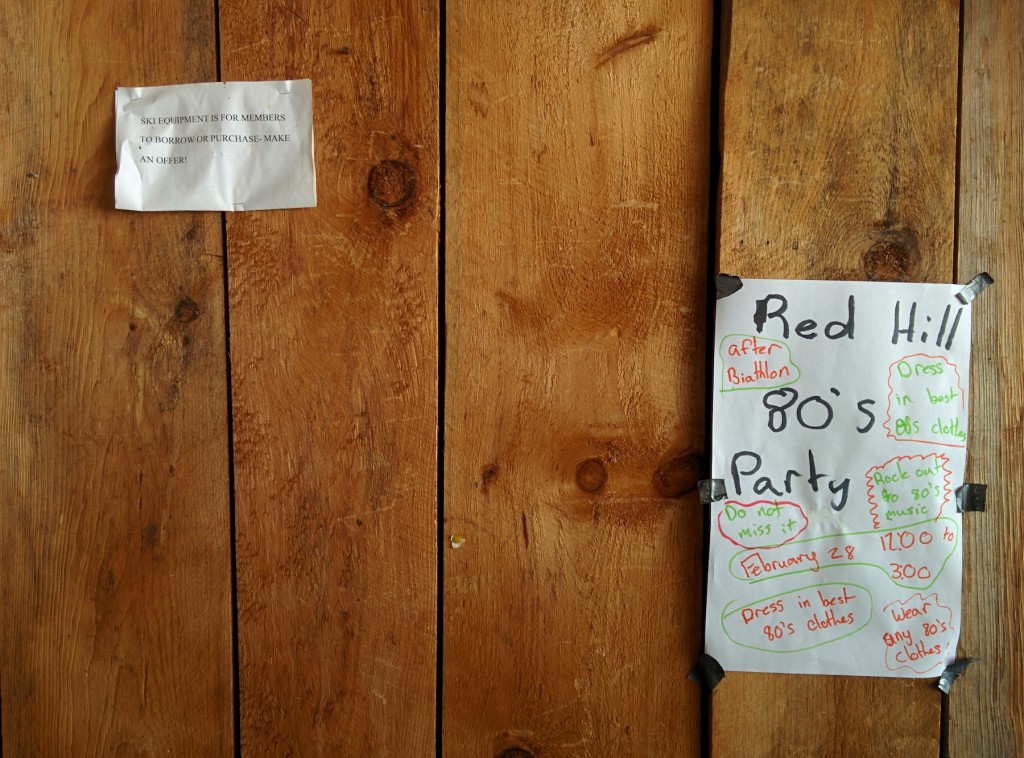 SKI EQUIPMENT IS FOR MEMBERS
TO BORROW OR PURCHASE- MAKE
AN OFFER!
Red Hill
after
Biathlon
80's
Dress
in best
80s clothes
Party
Rock out
to 80's
music
Do not
miss it
February 28
12:00 to
3:00
Dress in best
80's clothes
Wear
any 80's
clothes